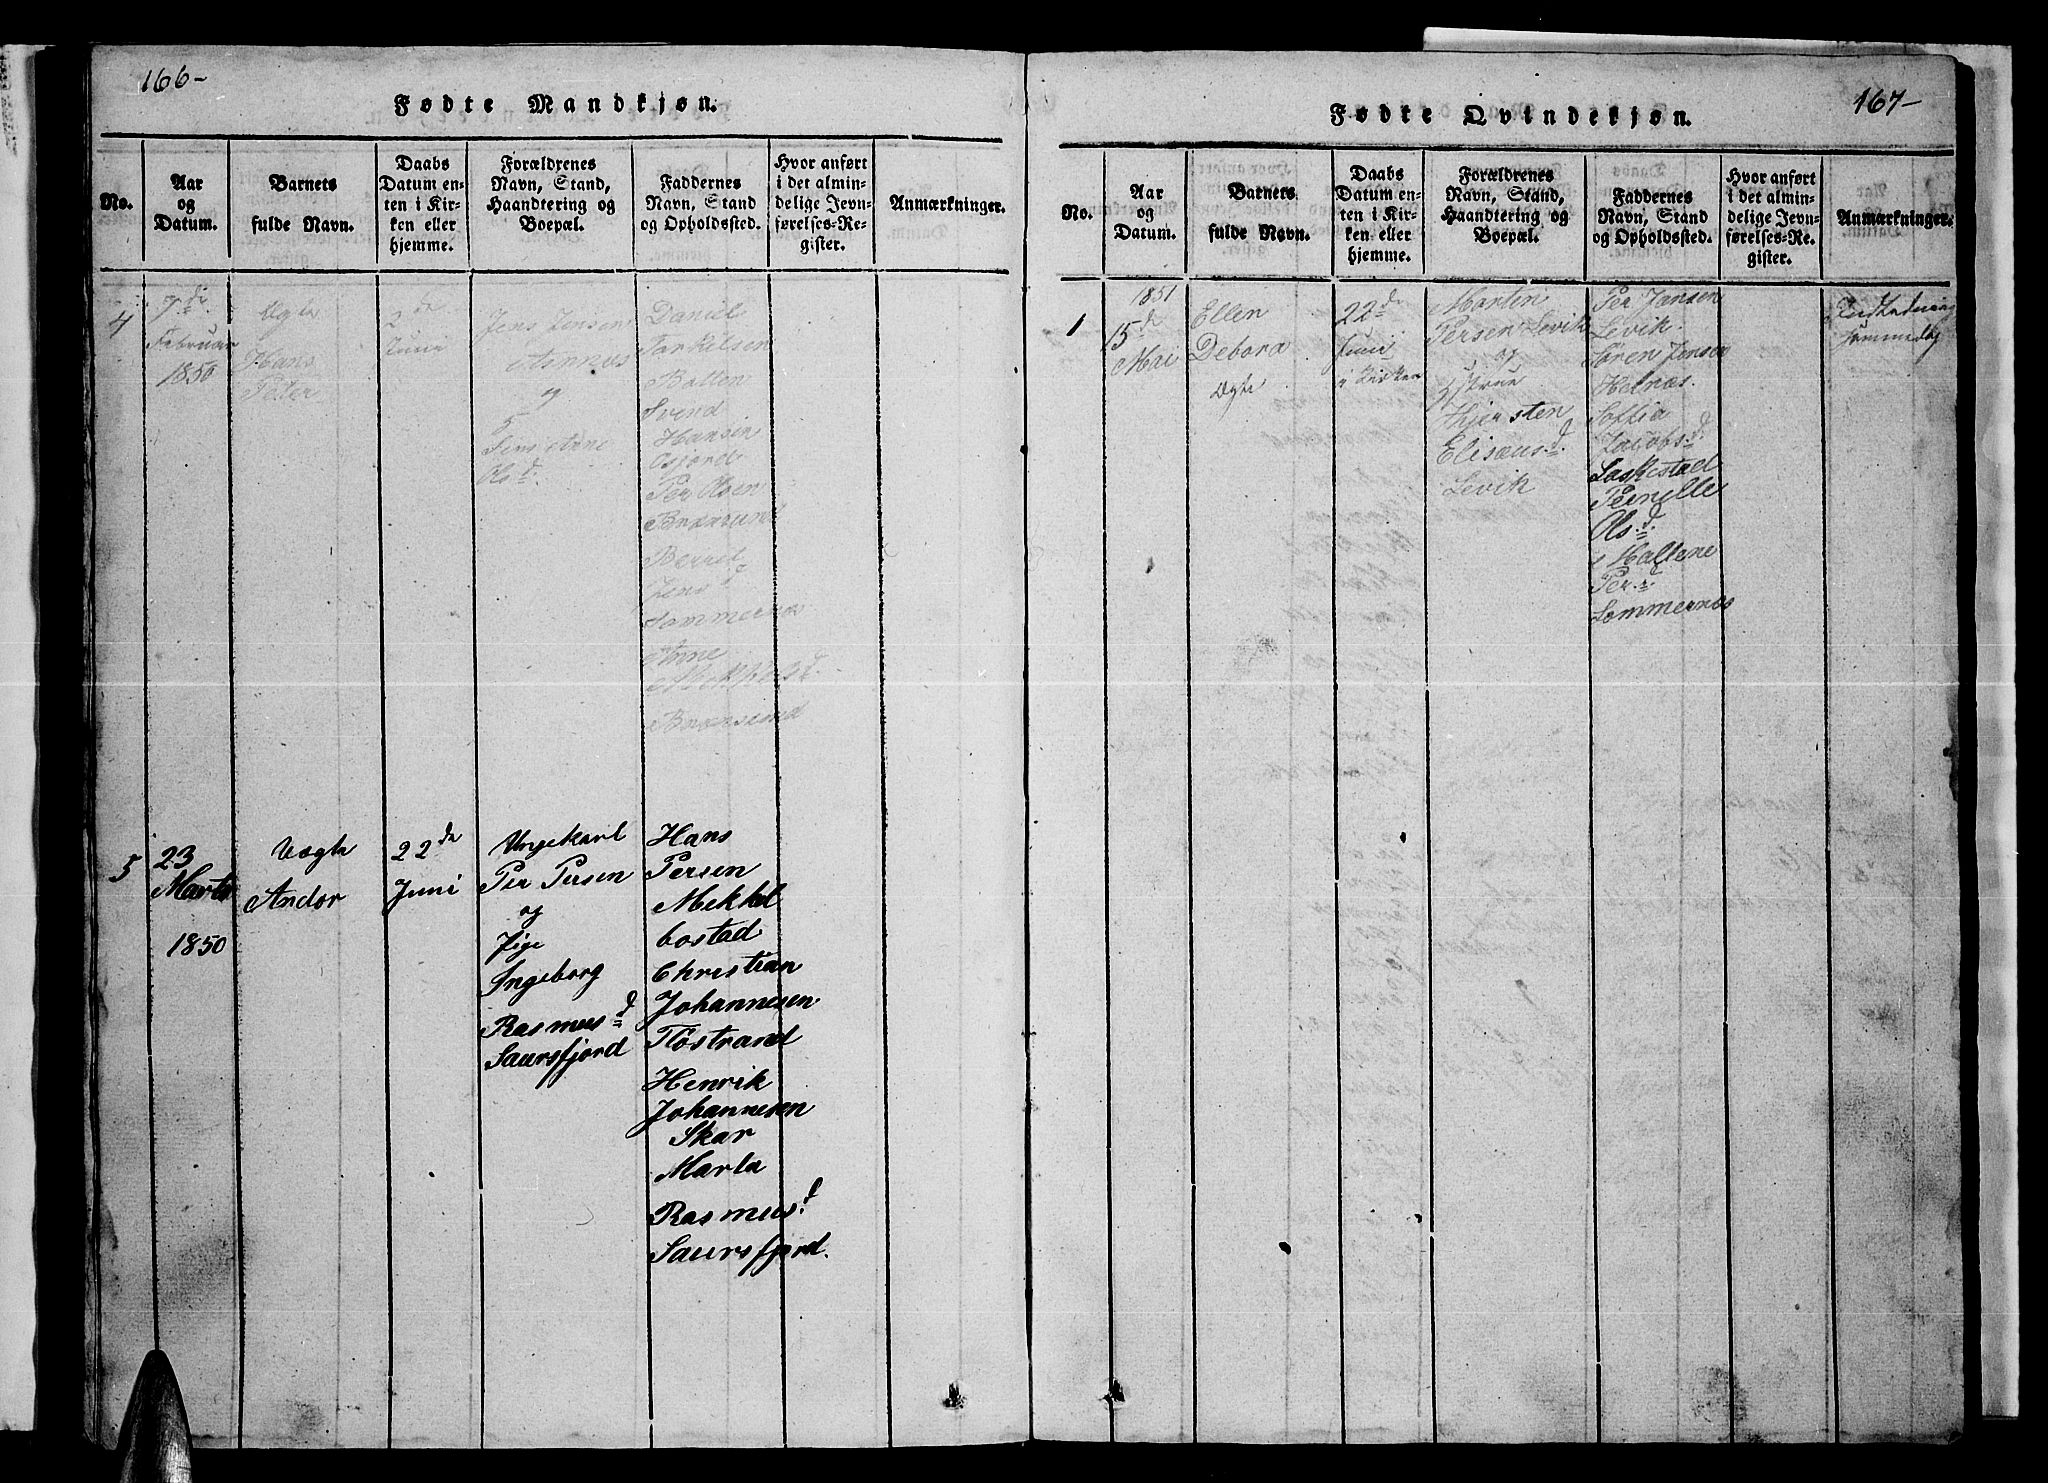 166-
Fødte Mandkjøn.
No.
Aar
og
Datum.
Barnets
fulde Navn.
Daabs
Datum en-
ten i Kir-
ken eller
hjemme.
Forældrenes
Navn, Stand,
Haandtering og
Boepæl.
Faddernes
Navn, Stand
og Opholdssted.
Hvor anført
i det almin-
delige Jevn-
førelses-Re-
gister.
Anmærkninger.
4
7de
Februar
1850
Ægte
Hans
Peter
2de
Juni
Jens Jensen
Asnnæs
og
Ols d.
Daniel
Torkilsen
Balten
Svend
Hansen
Osfjord
Per Olsen
Brænsund
Berrel
Jens d
Sommernæs
Anne
Brænsund
5
23
Marts
1850
Uægte
Andor
22de
Juni
Ungekarl
Per Persen
og
Pige
Ingeborg
Rasmus d
Saursfjord
Hans
Persen
Mekkel
bostad
Christian
Johannesen
Flostrand
Henrik
Johannesen
Skar
Marta
Rasmus d.
Saursfjord.
167-
Fødte Qvindekjøn.
No.
Aar
og
Datum.
Barnets
fulde Navn.
Daabs
Datum en-
ten i Kir-
ken eller
hjemme.
Forældrenes
Navn, Stand,
Haandtering og
Boepæl.
Faddernes
Navn, Stand
og Opholdssted.
Hvor anført
i det almin-
delige Jevn-
førelses-Re-
gister.
Anmærkninger.
1
1851
15de
Mai
Ellen
Debora
Ægte
22de
Juni
i Kirken
Morten
Persen Levik
og
Hustrue
Kjersten
Elisæus d.
Levik
Per Jansen
Levik
Søren Jensen
Helnæs.
Soffia
Jacobs d.
Laskestad
Pernille
Ols d.
Mallene
Per d
Sommernæs